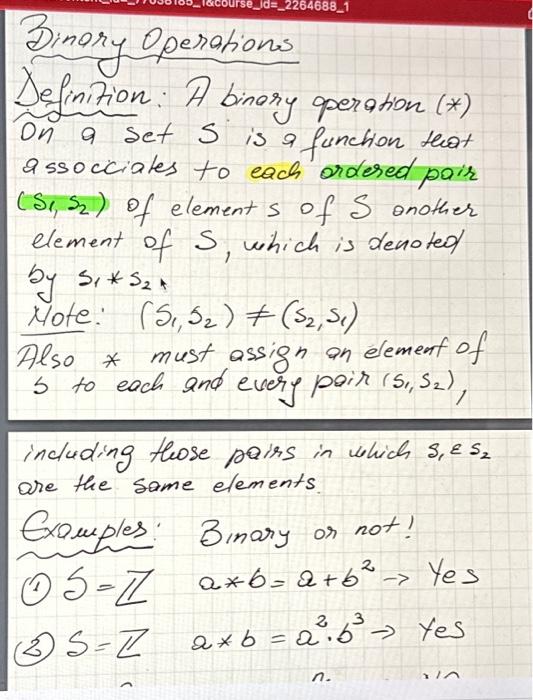 course_id=_2264688_1
Binary Operations
Definition: A binary operation (*)
On a set S is a function that
associates to each ordered pair
(s₁, s₂) of elements of S another
element of S, which is denoted
by s₁ * s₂.
Note: (s₁, s₂) ≠ (s₂, s₁)
Also * must assign an element of
S to each and every pair (s₁, s₂),
including those pairs in which s₁ & s₂
are the same elements.
Examples: Binary or not!
① S = ℤ a*b = a+b² → Yes
② S = ℤ a*b = a²·b³ → Yes